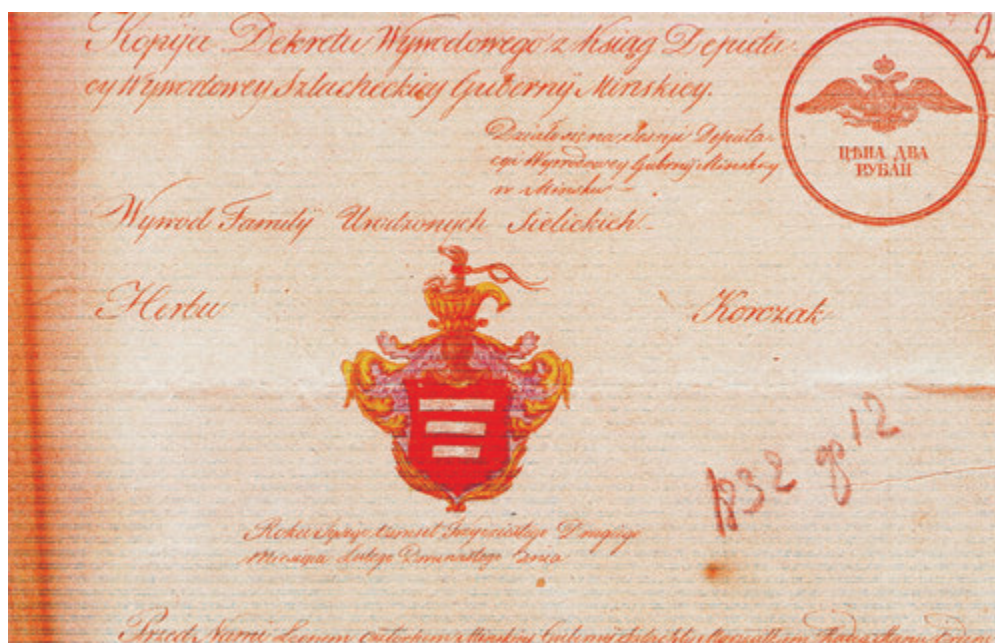 Kopija Dekretu Wywodowego z Ksiąg Deputa-
cyi Wywodowey Szlacheckiey Gubernij Minskiey.
2
ЦѢНА ДВА
РУБЛИ
Działo się na Sessyi Deputa-
cyi Wywodowey Gubernij Minskiey
w Minsku
Wywod Familij Urodzonych Sielickich
Herbu
Korczak
1832 12
Roku Tysiąc Trzydziestego Drugiego
Miesiąca Lutego Dwunastego Dnia
Przed Nami Leonem Gubernij